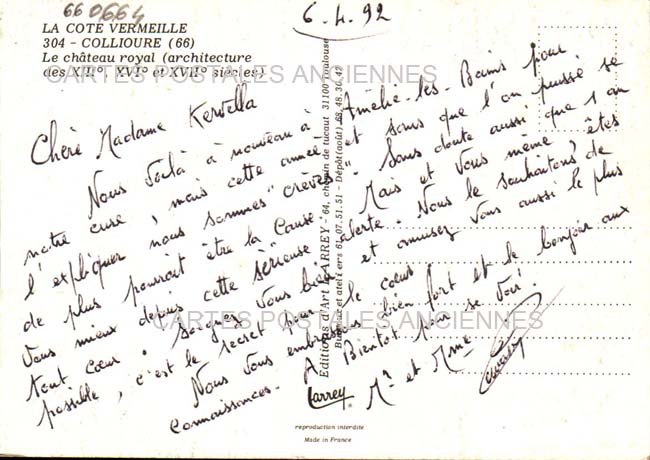 660664
6.4.92
LA COTE VERMEILLE
304 - COLLIOURE (66)
Le château royal (architecture
des XIII°, XVI° et XVII° siècles)
CARTES POSTALES ANCIENNES
Chère Madame Kervella
Nous voilà à nouveau à Amélie-les-Bains pour
notre cure, mais cette année et sans que l'on puisse se
l'expliquer nous sommes "crèvés" sans doute aussi que 1 an
de plus pourrait être la cause. Mais et vous même, êtes
vous mieux depuis cette sérieuse alerte. Nous le souhaitons de
tout cœur. Soignez vous bien et amusez vous aussi le plus
possible, c'est le secret pour le cœur
Nous vous embrassons bien fort et le bonjour aux
connaissances. A Bientôt pour se voir!
Mr et Mme
CARTES POSTALES ANCIENNES
Editions d'Art LARREY - 64, chemin de tucaut 31100 Toulouse
Bureaux et ateliers 61.07.51.51 - Dépôt (août) 68.48.30.42
Larrey
reproduction interdite
Made in France